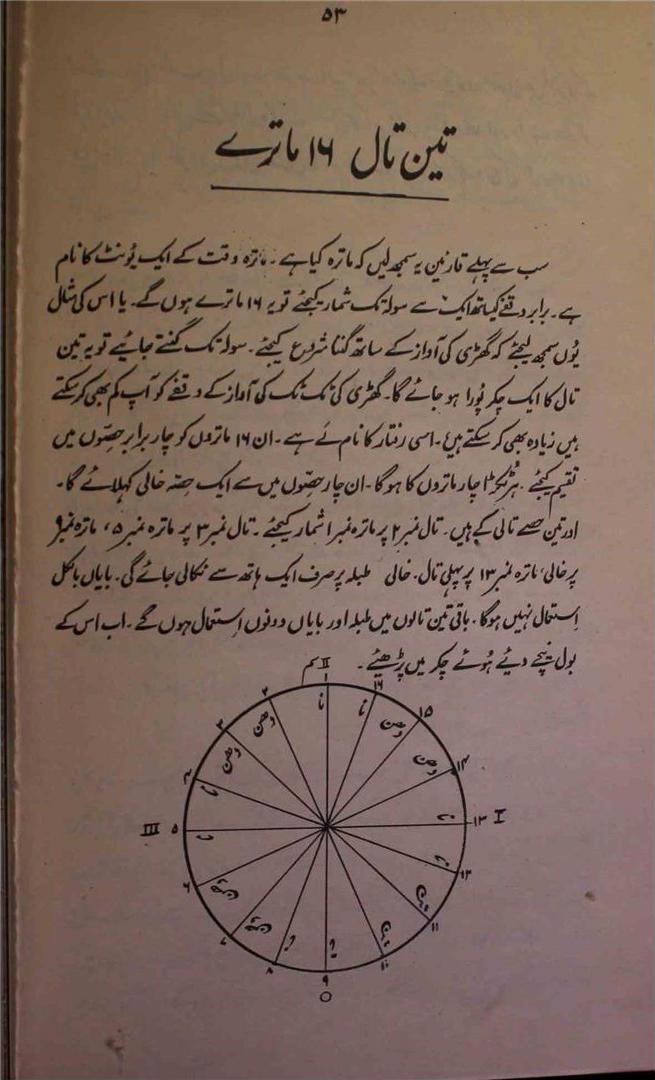 ۵۳
تین تال ۱۶ ماترے
سب سے پہلے قارئین یہ سمجھ لیں کہ ماترہ کیا ہے۔ ماترہ وقت کے ایک یُونٹ کا نام
ہے۔ برابر وقفے کیساتھ ایک سے سولہ تک شمار کیجئے تو یہ ۱۶ ماترے ہوں گے۔ یا اس کی مثال
یُوں سمجھ لیجئے کہ گھڑی کی آواز کے ساتھ گننا شروع کیجئے۔ سولہ تک گنتے جائیے تو یہ تین
تال کا ایک چکر پُورا ہو جائے گا۔ گھڑی کی ٹک ٹک کی آواز کے وقفے کو آپ کم بھی کر سکتے
ہیں زیادہ بھی کر سکتے ہیں۔ اسی رفتار کا نام لَے ہے۔ ان ۱۶ ماتروں کو چار برابر حصّوں میں
تقسیم کیجئے۔ ہر ٹکڑا چار ماتروں کا ہو گا۔ ان چار حصّوں میں سے ایک حِصّہ خالی کہلائے گا۔
اور تین حصے تالی کے ہیں۔ تال نمبر ۲ پر ماترہ نمبر ۱ شمار کیجئے۔ تال نمبر ۳ پر ماترہ نمبر ۵، ماترہ نمبر ۹
پر خالی، ماترہ نمبر ۱۳ پر پہلی تال۔ خالی طبلہ پر صرف ایک ہاتھ سے نکالی جائے گی۔ بایاں بالکل
اِستعمال نہیں ہو گا۔ باقی تین تالوں میں طبلہ اور بایاں دونوں اِستعمال ہوں گے۔ اب اس کے
بول نیچے دیئے ہُوئے چکر میں پڑھیئے۔
II سم
۱ نا
۲ دھن
۳ دھن
۴ نا
III ۵ نا
۶ دھن
۷ دھن
۸ نا
۹ نا
O
۱۰ تین
۱۱ تین
۱۲ نا
۱۳ I نا
۱۴ دھن
۱۵ دھن
۱۶ نا